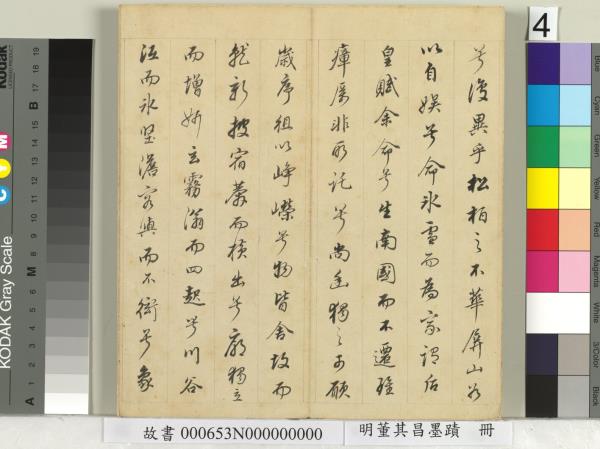 兮復異乎松柏之不華屏山谷
以自娛兮命氷雪而為家謂后
皇賦余命兮生南國而不遷雖
瘴厲非所託兮尚幽獨之可願
歲序徂以崢嶸兮物皆舍故而
就新披宿莽而橫出兮廓獨立
而增妍玄霧滃而四起兮川谷
沍而氷堅澹容與而不衒兮象
故書 000653N000000000
明董其昌墨蹟 冊
4
Kodak
LICENSED PRODUCT
KODAK Gray Scale
C Y M
A 1 2 3 4 5 6 M 8 9 10 11 12 13 14 15 B 17 18 19
Blue
Cyan
Green
Yellow
Red
Magenta
White
3/Color
Black